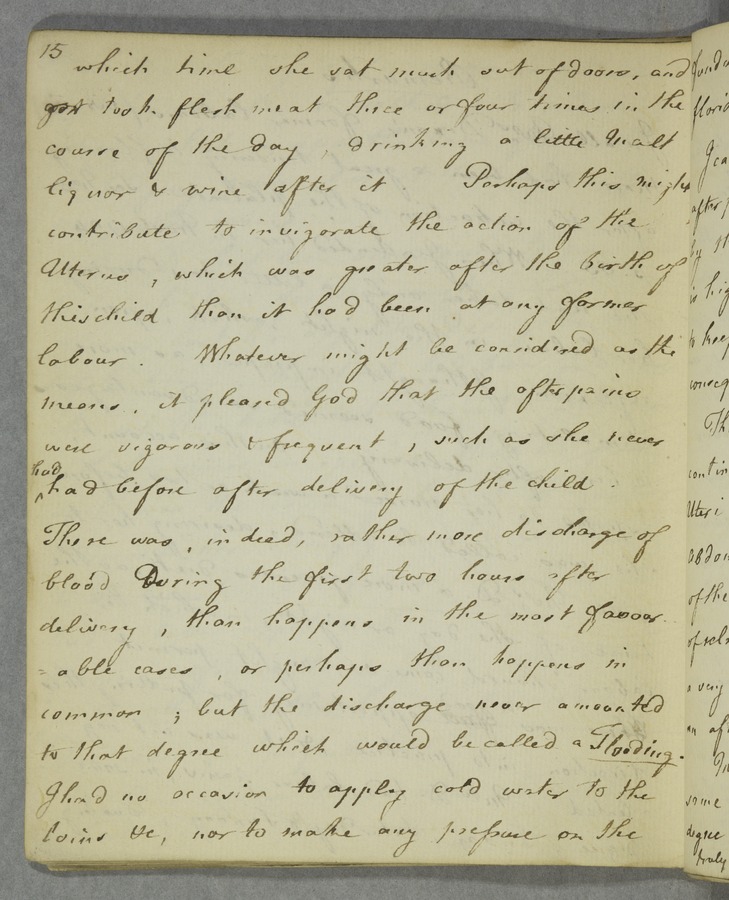 15
which time she sat much out of doors, and
took flesh meat three or four times in the
course of the day, drinking a little malt
liquor & wine after it. Perhaps this might
contribute to invigorate the action of the
Uterus, which was greater after the birth of
this child than it had been at any former
labour. Whatever might be considered as the
means, it pleased God that the afterpains
were vigorous & frequent, such as she never
had
had before after delivery of the child.
There was, indeed, rather more discharge of
blood During the first two hours after
delivery, than happens in the most favour
=able cases, or perhaps than happens in
common; but the discharge never amounted
to that degree which would be called a Flooding.
I had no occasion to apply cold water to the
loins &c, nor to make any pressure on the
florid
after
by
to keep
conseq
Th
contin
Uteri
abdom
of the
a very
an aft
some
degree
truly